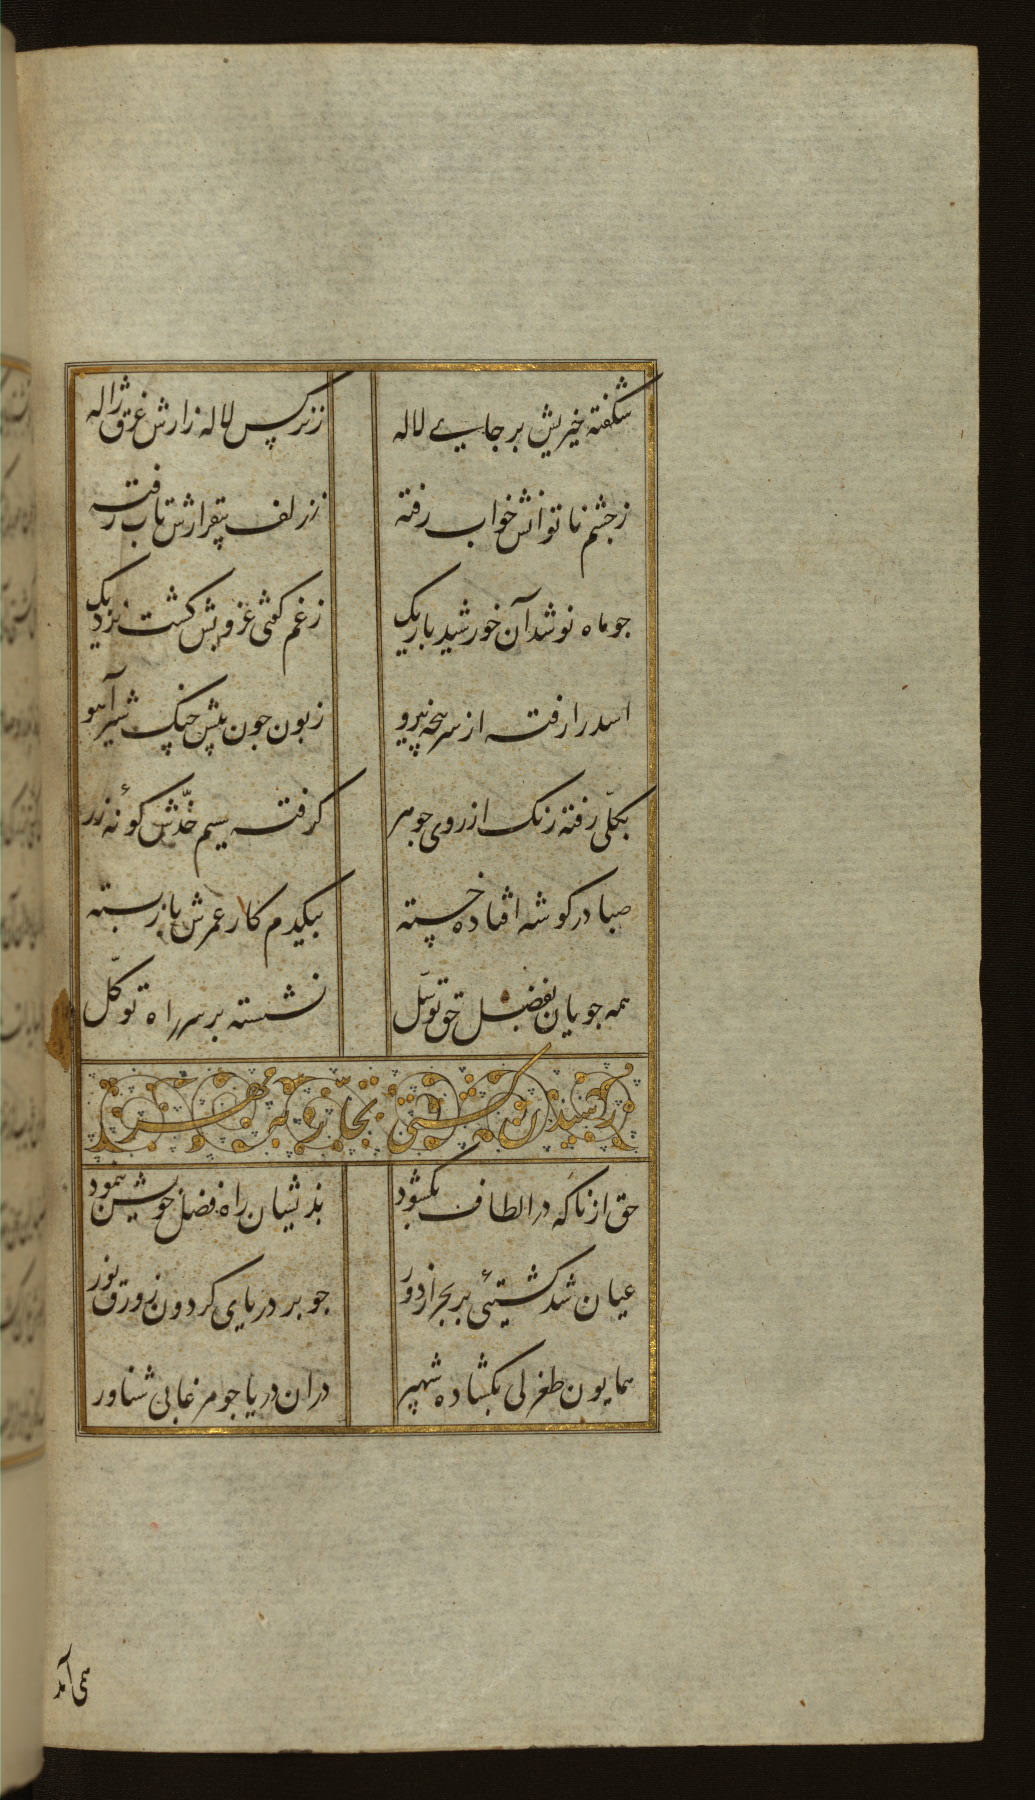 شکفته خیریش بر جای لاله
ز نرگس لاله زارش غرق ژاله
ز چشم ناتوانش خواب رفته
ز زلف بیقرارش تاب رفته
جو ماه نو شد آن خورشید باریک
ز غم گوئی غروبش گشت نزدیک
اسد را رفته از سرپنجه نیرو
زبون جون پیش جنگ شیر آهو
بکلّی رفته رنک از روی جوهر
کرفته سیم خدّش کوئه زر
صبا در کوشه افتاده خسته
بیکدم کار عمرش باز بسته
همه جویان بفضل حق توسّل
نشسته بر سر راه توکّل
رسیدن کشتی تجار به مهر
حق از ناکه در الطاف بکشود
بدیشان راه فضل خویش بنمود
عیان شد کشتیئی بر بحر از دور
جو بر دریای کردون زورق نور
همایون طغرلی بکشاده شهپر
در ان دریا جو مرغابی شناور
همی آمد